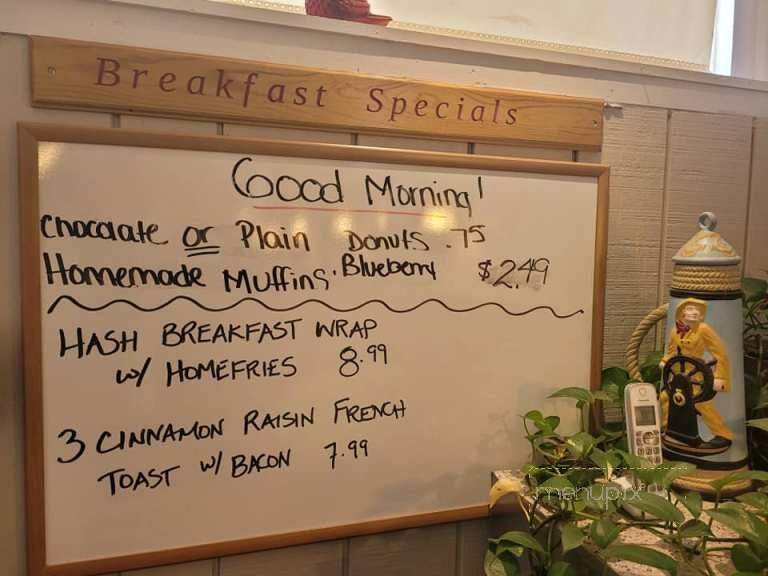 Breakfast Specials
Good Morning!
Chocolate or Plain Donuts .75
Homemade Muffins. Blueberry $2.49
HASH BREAKFAST WRAP
w/ HOMEFRIES 8.99
3 CINNAMON RAISIN FRENCH
TOAST w/ BACON 7.99
menupix